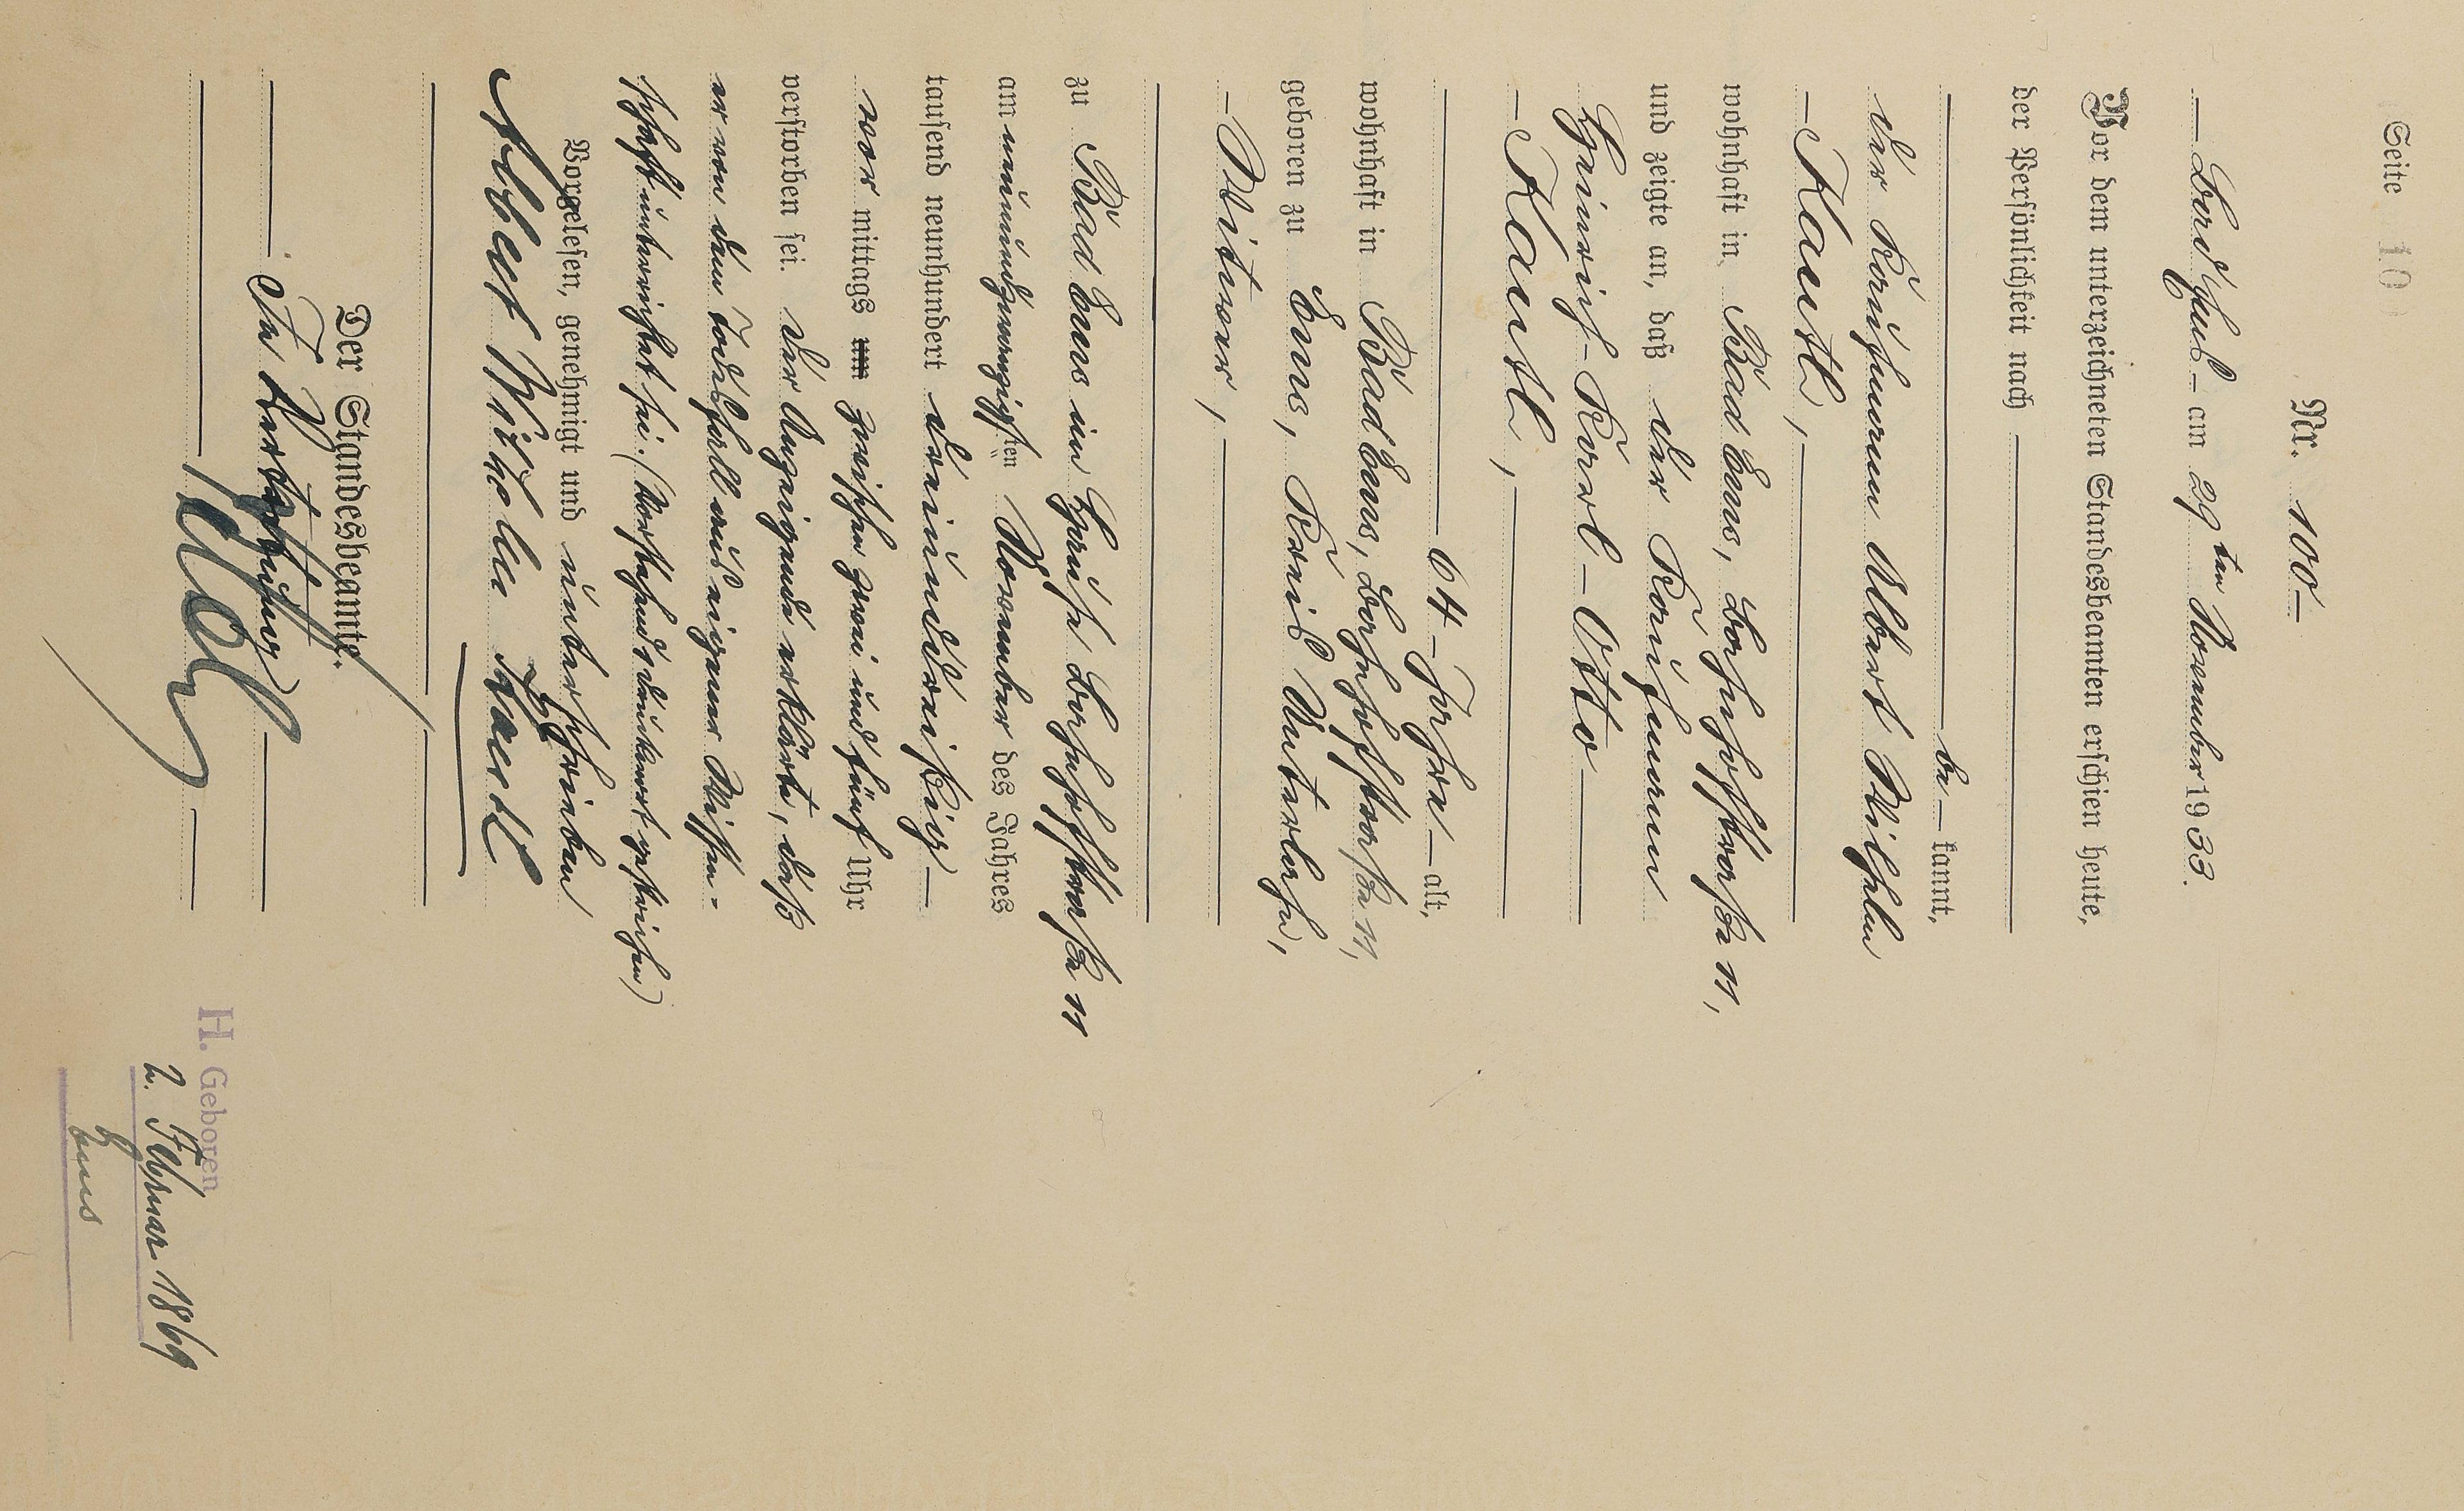 Seite 10
Nr. 100
Bad Ems am 29ten November 1933.
Vor dem unterzeichneten Standesbeamten erschien heute,
der Persönlichkeit nach
be kannt,
der Kaufmann Albert Wilhelm
Kauth,
wohnhaft in Bad Ems, Bahnhofstraße 11,
und zeigte an, daß der Kaufmann
Heinrich-Karl-Otto
Kauth,
64 Jahre alt,
wohnhaft in Bad Ems, Bahnhofstraße 11,
geboren zu Ems, Kreis Unterlahn,
Witwer,
zu Bad Ems im Hause Bahnhofstraße 11
am neunundzwanzigsten November des Jahres
tausend neunhundert dreiunddreißig
vor mittags um zwischen zwei und fünf Uhr
verstorben sei. Der Anzeigende erklärte, daß
er von dem Todesfall aus eigener Wissen-
schaft unterrichtet sei. (Vorstehendes Druckwort gestrichen)
Vorgelesen, genehmigt und unterschrieben
Albert Wilhelm Kauth
Der Standesbeamte.
In Vertretung
H. Geboren
2. Februar 1869
Ems